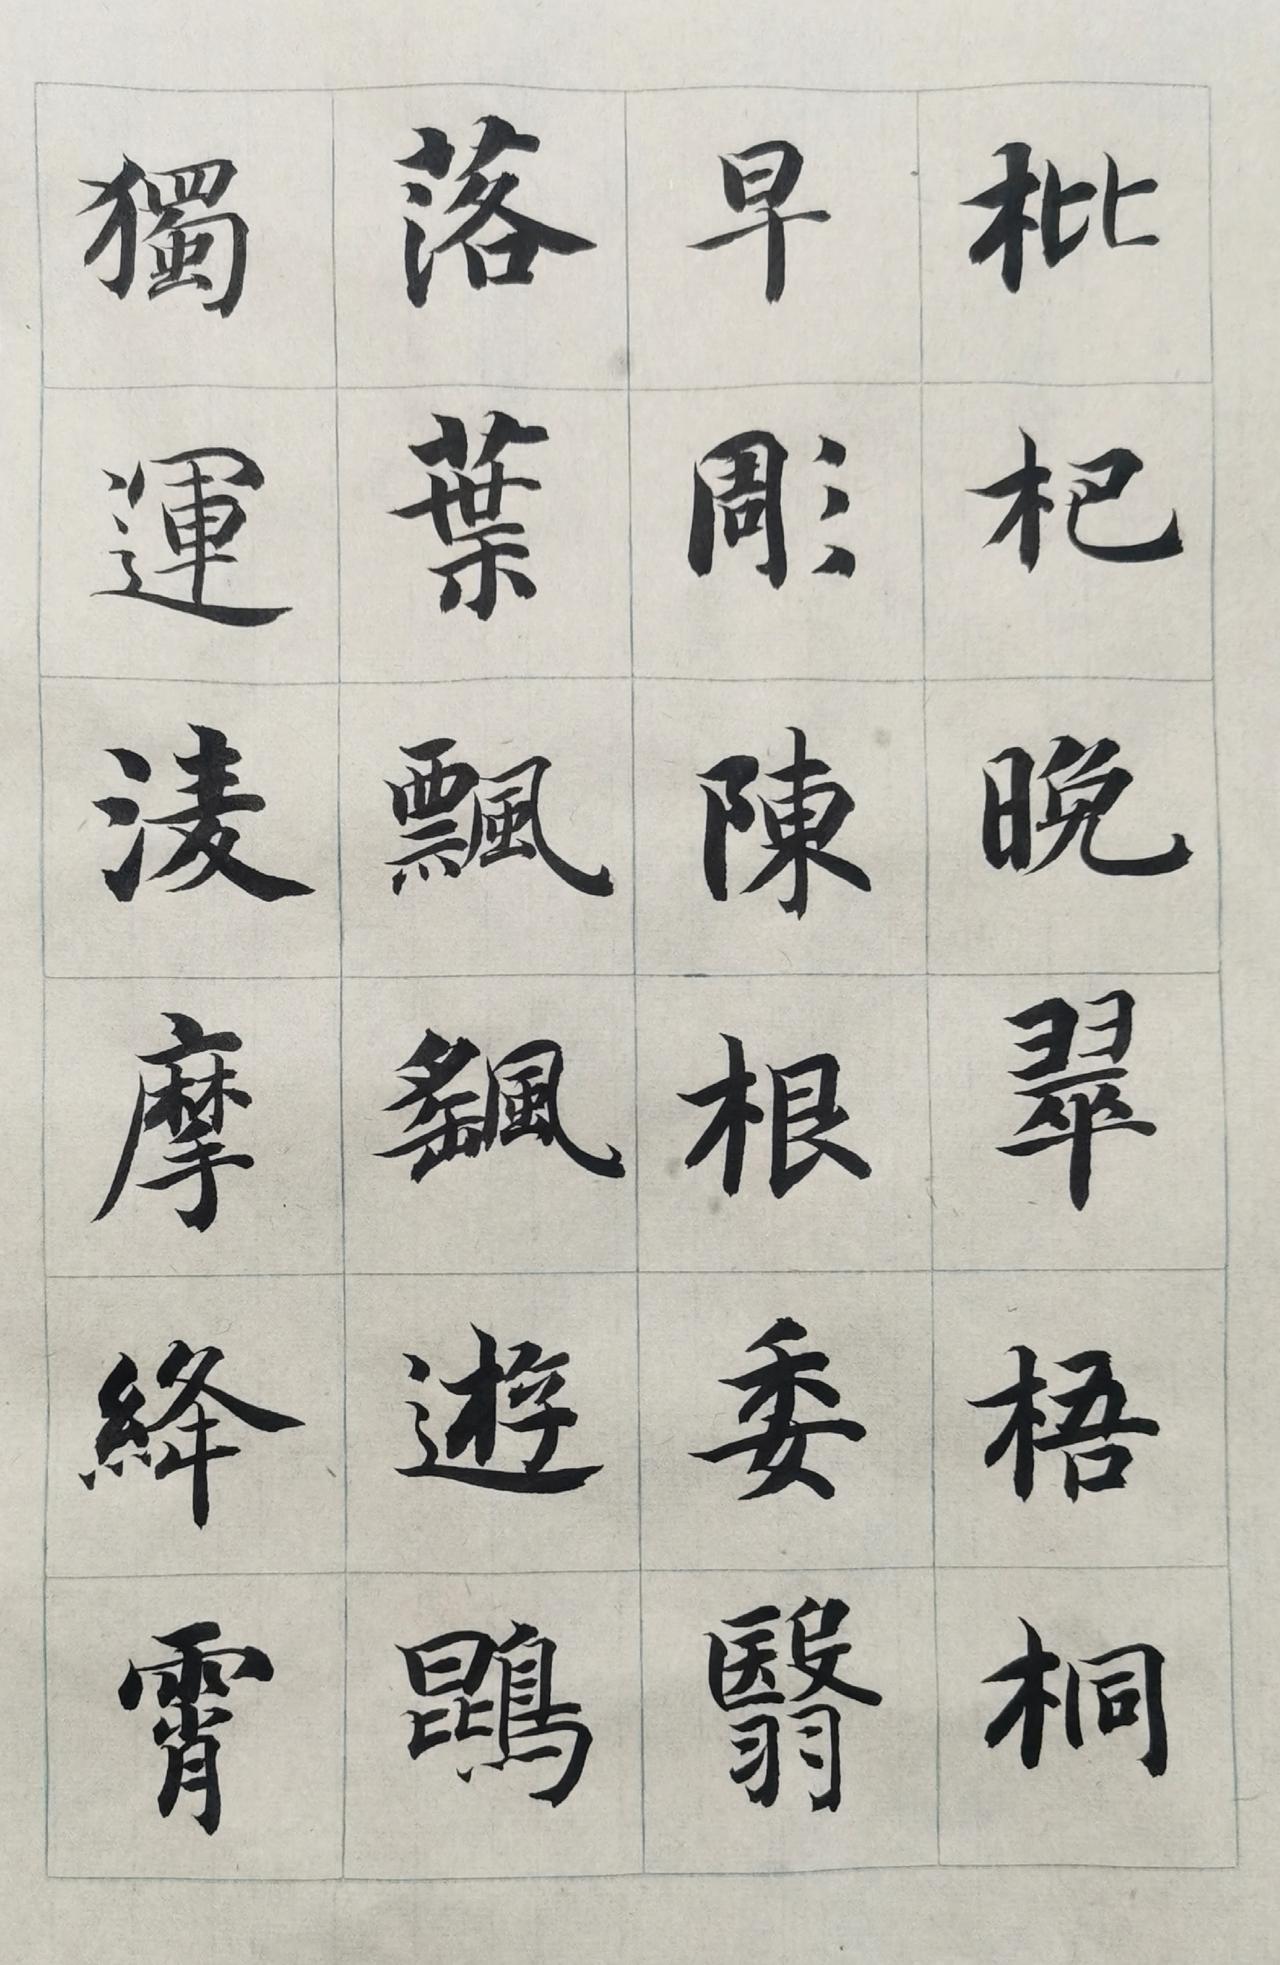 枇杷晚翠梧桐
早彫陳根委翳
落葉飄颻遊鵾
獨運淩摩絳霄